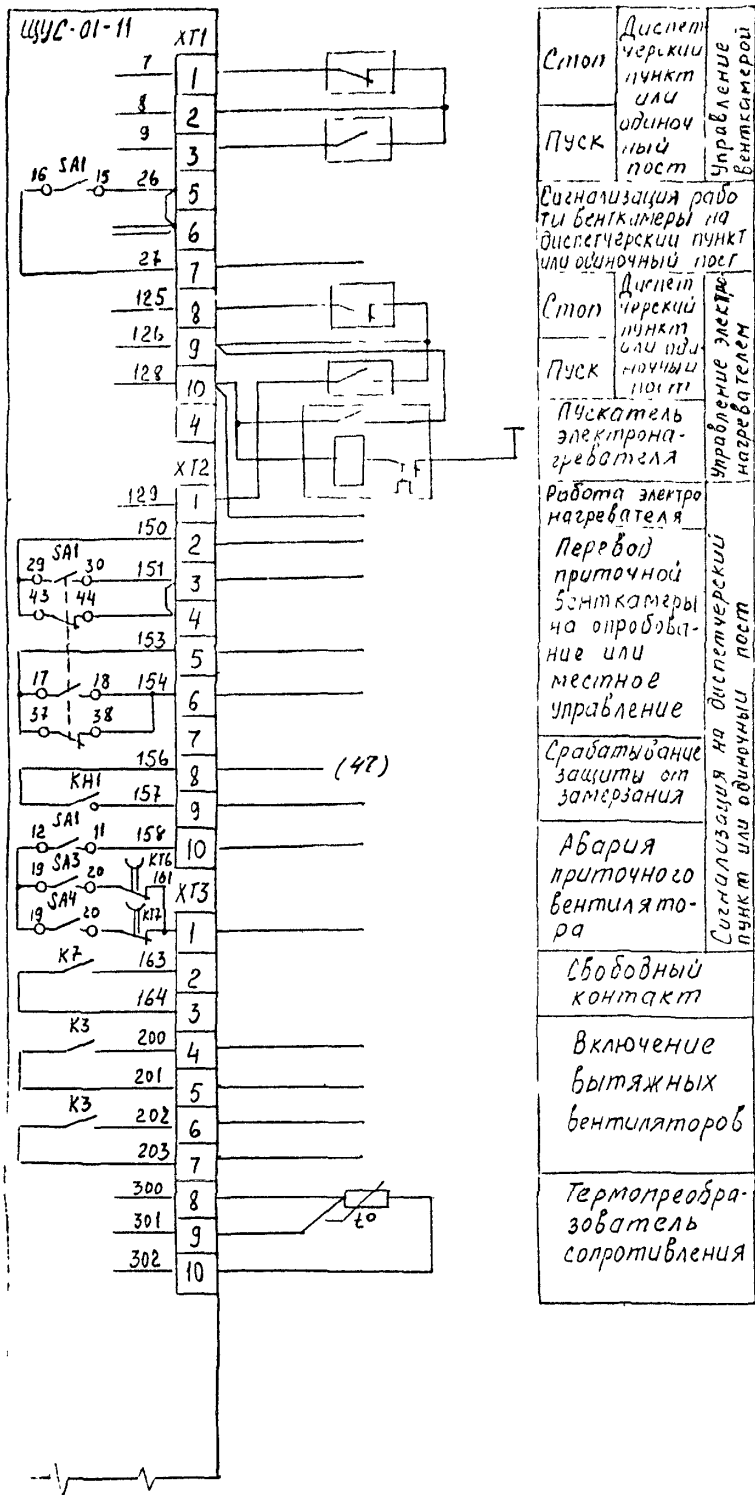 ЩУС-01-11
XT1
7
1
8
2
9
3
16 SA1 15 26
5
6
27
7
125
8
126
9
128
10
4
XT2
129
1
150
2
SA1
29 30 151
3
43 44
4
153
5
17 18 154
6
37 38
7
156
8
(47)
KH1
157
9
SA1
12 11 158
10
SA3
19 20 KT6
161
XT3
SA4
19 20 KT7
1
K7
163
2
164
3
K3
200
4
201
5
K3
202
6
203
7
300
8
301
9
t°
302
10
Стоп
Пуск
Диспет
черский
пункт
или
одиноч
ный
пост
Управление
венткамерой
Сигнализация рабо
ты венткамеры на
диспетчерский пункт
или одиночный пост
Стоп
Пуск
Диспет
черский
пункт
или оди-
ночный
пост
Управление электро
нагревателем
Пускатель
электрона-
гревателя
Работа электро
нагревателя
Перевод
приточной
венткамеры
на опробова-
ние или
местное
управление
Срабатывание
защиты от
замерзания
Авария
приточного
вентилято-
ра
Сигнализация на диспетчерский
пункт или одиночный пост
Свободный
контакт
Включение
вытяжных
вентиляторов
Термопреобра-
зователь
сопротивления